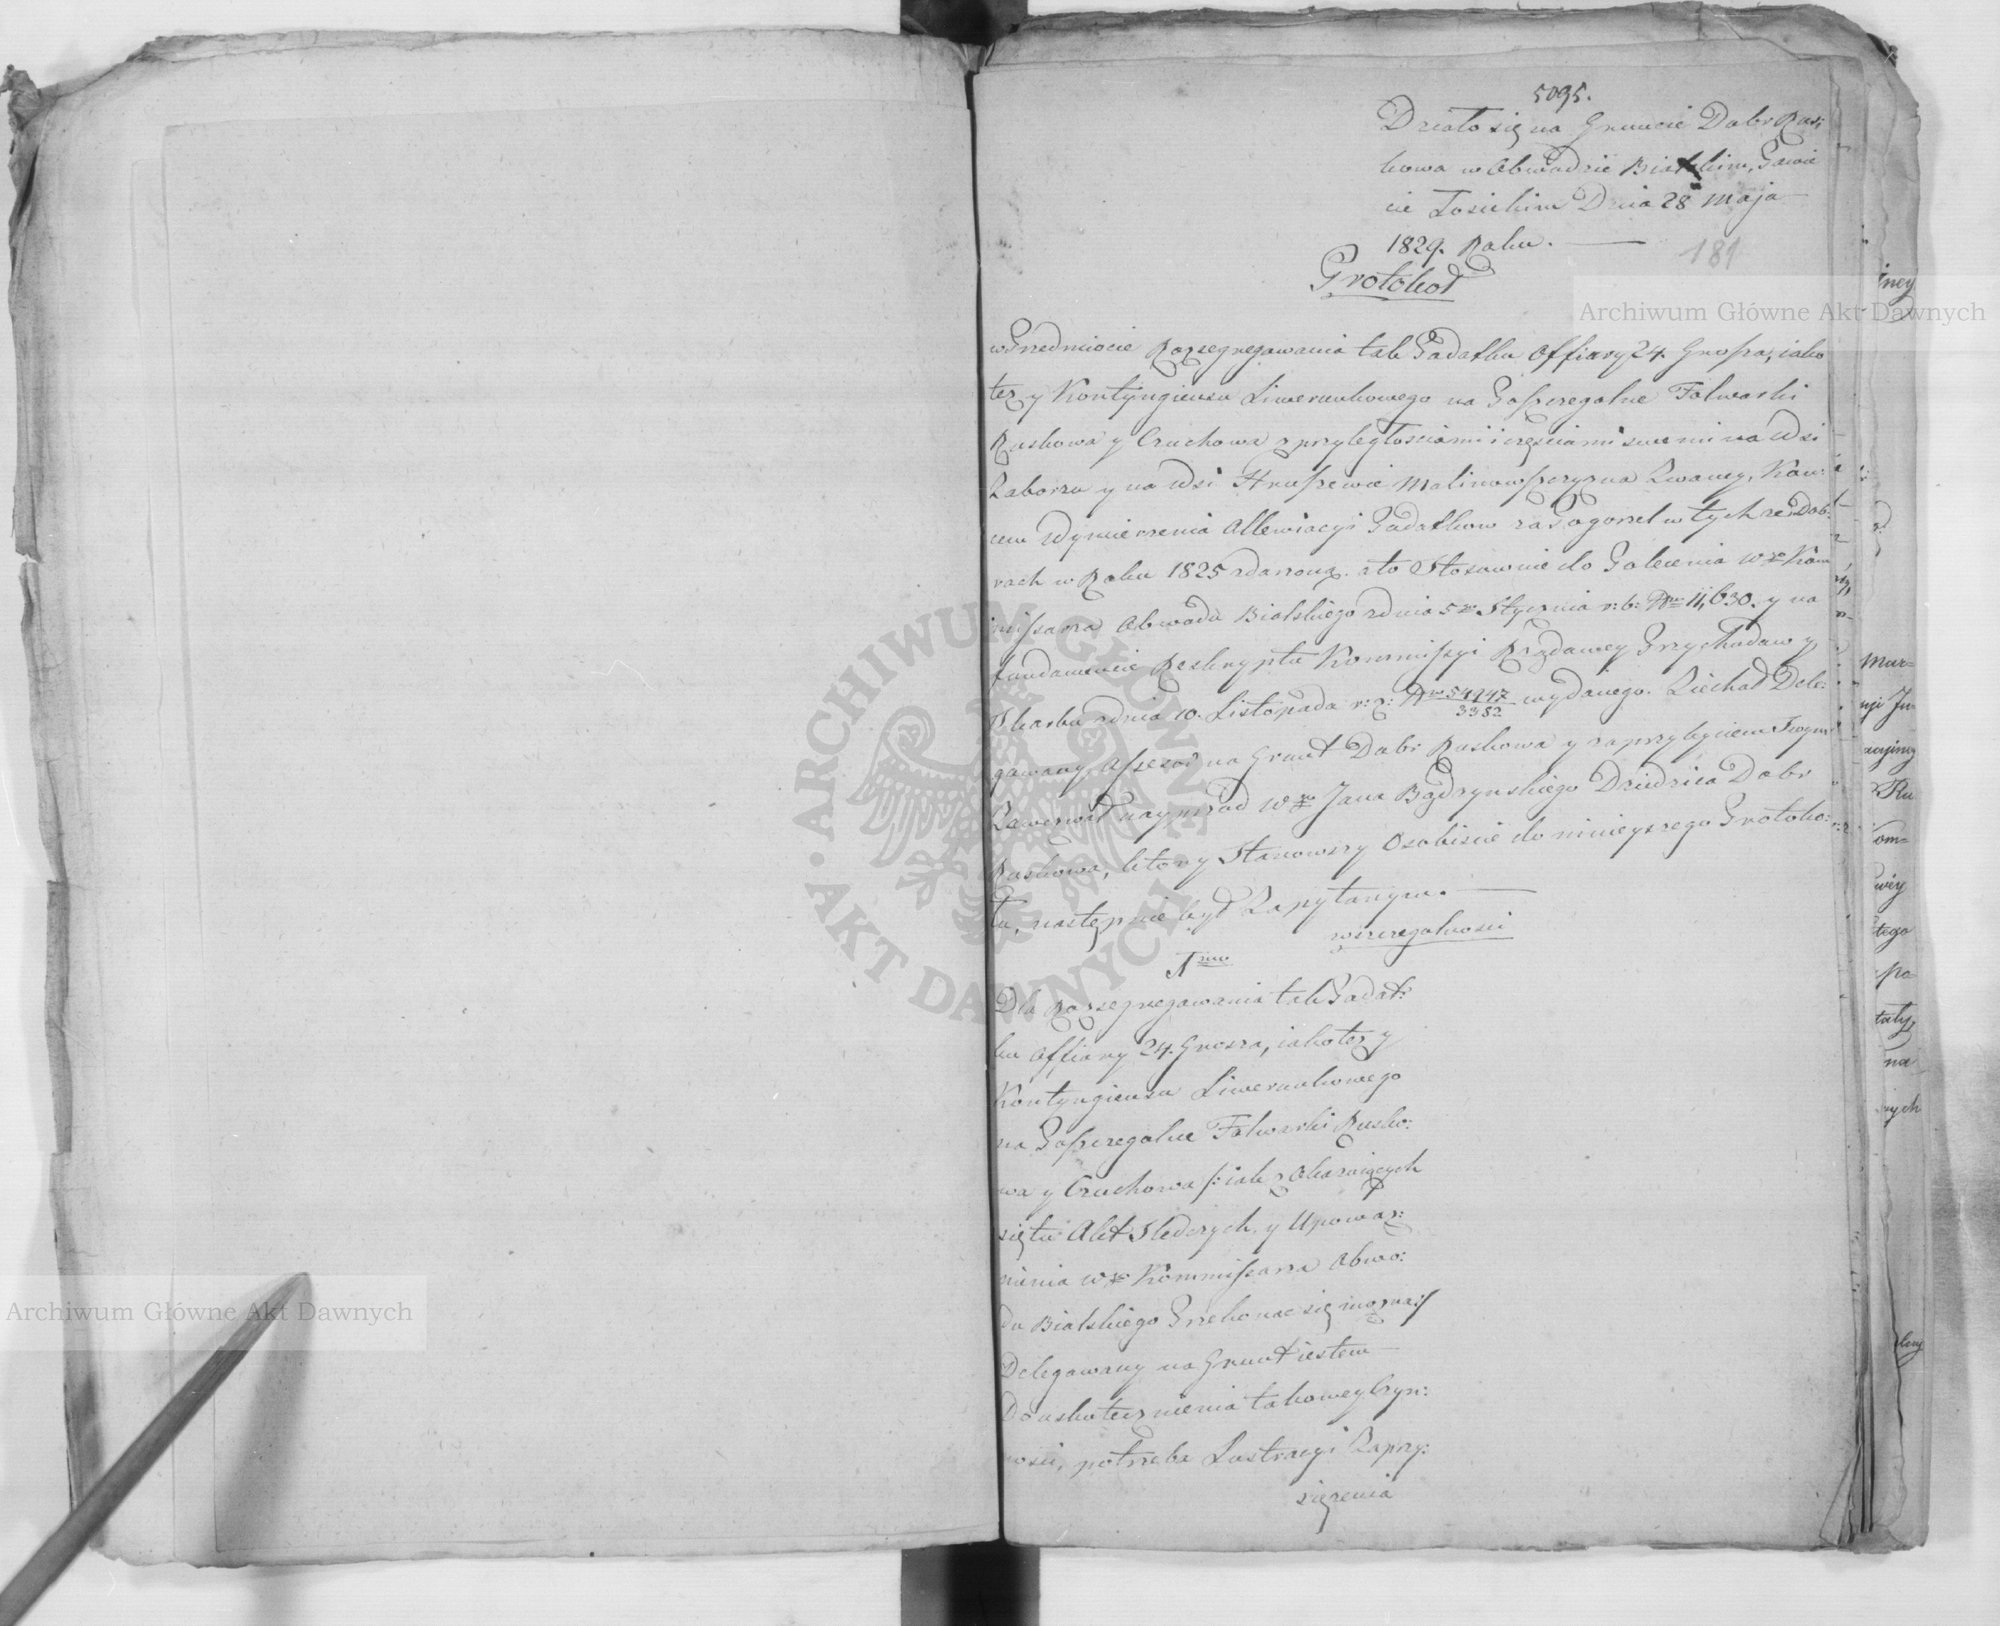 5095.
Działo się na Gruncie Dóbr Rus:
kowa w Obwodzie Bialskim, Powie
cie Łosickim Dnia 28 Maja
1829. Roku.
181
Protokoł
w Przedmiocie Rozsegregowania tak Podatku Offiary 24. Grosza, iako
też y Kontyngiensu Liwerunkowego na Poszczegolne Folwarki
Ruskowa y Czuchowa z przyległosciami i częściami swemi na Wsi
Zaborzu y na Wsi Hruszewie Malinowszczyzna Zwaney, Kon:
cem Wymierzenia Allewiacyi Podatkow za Pogorzel w tychże Dob:
rach w Roku 1825 zdarzoną. a to Stosownie do Polecenia Wgo Kom
missarza Obwodu Bialskiego z dnia 5go Stycznia r: b: Nro 11,630. y na
fundamencie Reskryptu Kommissyi Rządowey Przychodow y
Skarbu z dnia 10. Listopada r: z: Nro 54947/3382 wydanego. Ziechał Dele:
gowany Assessor na Grunt Dobr Ruskowa y za przybyciem Swym
Zawezwał nayprzod Wgo Jana Bądzynskiego Dziedzica Dobr
Ruskowa, ktory Stanowszy Osobiscie do ninieyszego Protoko:
łu, następnie był Zapytanym.
w szczegolnosci
1mo
Dla Rozsegregowania tak Podat:
ku Offiary 24. Grosza, iako też y
Kontyngiensu Liwerunkowego
na Poszczegolne Folwarki Rusko:
wa y Czuchowa /: iak z Okazaiących
się tu Akt Sledczych y Upoważ:
nienia Wgo Kommissarza Obwo:
du Bialskiego Przekonac się można :/
Delegowany na Grunt iestem
Do uskutecznienia takowey Czyn:
nosci, potrzeba Lustracyi Zaprzy:
siężenia
Archiwum Główne Akt Dawnych
Archiwum Główne Akt Dawnych
ARCHIWUM GŁÓWNE · AKT DAWNYCH ·